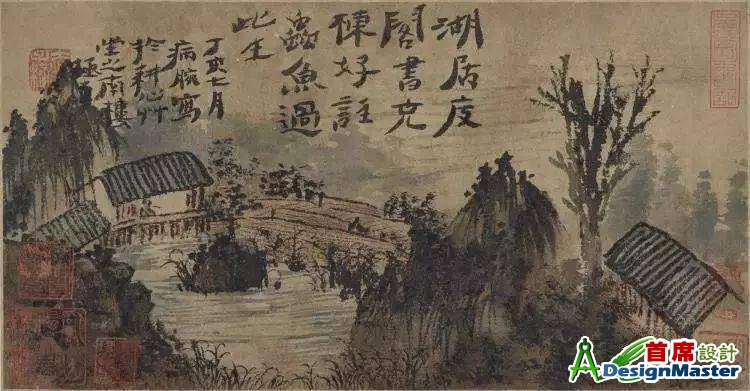 湖居庋
閣書充
棟好註
蟲魚過
此生
丁亥七月
病腕寫
於耕心艸
堂之南樓
極
首席設計
ADesignMaster